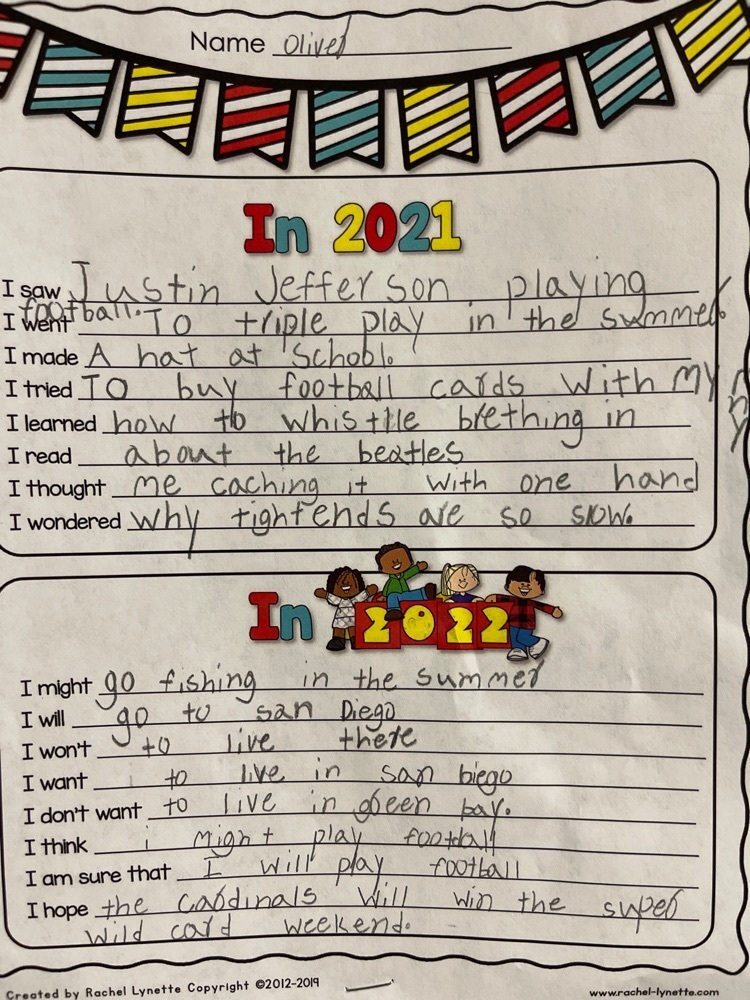 Name Oliver
In 2021
I saw Justin Jefferson playing
football.
I went To triple play in the summer.
I made A hat at School.
I tried To buy football cards with My
I learned how to whistle brething in
I read about the beatles
I thought me caching it with one hand
I wondered why tight ends are so slow.
In 2022
I might go fishing in the summer
I will go to san Diego
I won't to live there
I want to live in san Diego
I don't want to live in green bay.
I think i might play football
I am sure that I will play football
I hope the cardinals will win the super
wild card weekend.
Created by Rachel Lynette Copyright ©2012-2019
www.rachel-lynette.com